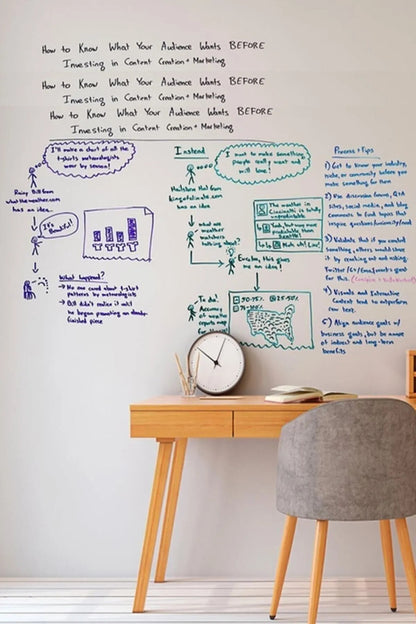 How to Know What Your Audience Wants BEFORE
Investing in Content Creation + Marketing
How to Know What Your Audience Wants BEFORE
Investing in Content Creation + Marketing
How to Know What Your Audience Wants BEFORE
Investing in Content Creation + Marketing
I'll make a chart of all the
t-shirts meteorologists
wear by season!
Rainy Bill from
whattheweather.com
has an idea...
It's
Beautiful!
What happened?
→ No one cared about t-shirt
patterns by meteorologists
→ Bill didn't realize it until
he began promoting an
finished piece
Instead
I want to make something
people really want and
will love!
Hailstorm Hal from
kingofclimate.com
has an idea
what are
weather
watchers
talking about?
The weather in
Cincinnati is totally
unpredictable
more
predictable than
Seattle's
Nuh uh! Liar!
Eureka, this gives
me an idea!
To do:
Accuracy
of weather
reports map
50-75%
25-50%
75-100%
Process + Tips
1) Get to know your industry,
niche, or community before you
make something for them
2) Use discussion forums, Q+A
sites, social media, and blog
comments to find topics that
inspire questions/curiosity/need
3) Validate that if you create
something others would share
it by reaching out and asking.
Twitter/G+/Email works great
for this.
4) Visuals and Interactive
Content tend to outperform
raw text.
5) Align audience goals w/
business goals, but be aware
of indirect and long-term
benefits